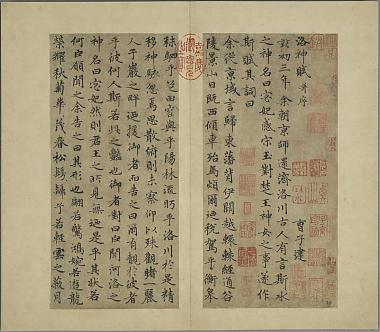 洛神賦 并序
曹子建
黃初三年余朝京師還濟洛川古人有言斯水
之神名曰宓妃感宋玉對楚王神女之事遂作
斯賦其詞曰
余從京域言歸東藩背伊闕越轘轅經通谷
陵景山日既西傾車殆馬煩爾迺稅駕乎蘅皋
秣駟乎芝田容與乎陽林流眄乎洛川於是精
移神駭忽焉思散俯則未察仰以殊觀睹一麗
人于巖之畔迺援御者而告之曰爾有覿於彼者
乎彼何人斯若此之豔也御者對曰臣聞河洛之
神名曰宓妃然則君王之所見無迺是乎其狀若
何臣願聞之余告之曰其形也翩若驚鴻婉若遊龍
榮耀秋菊華茂春松髣髴兮若輕雲之蔽月